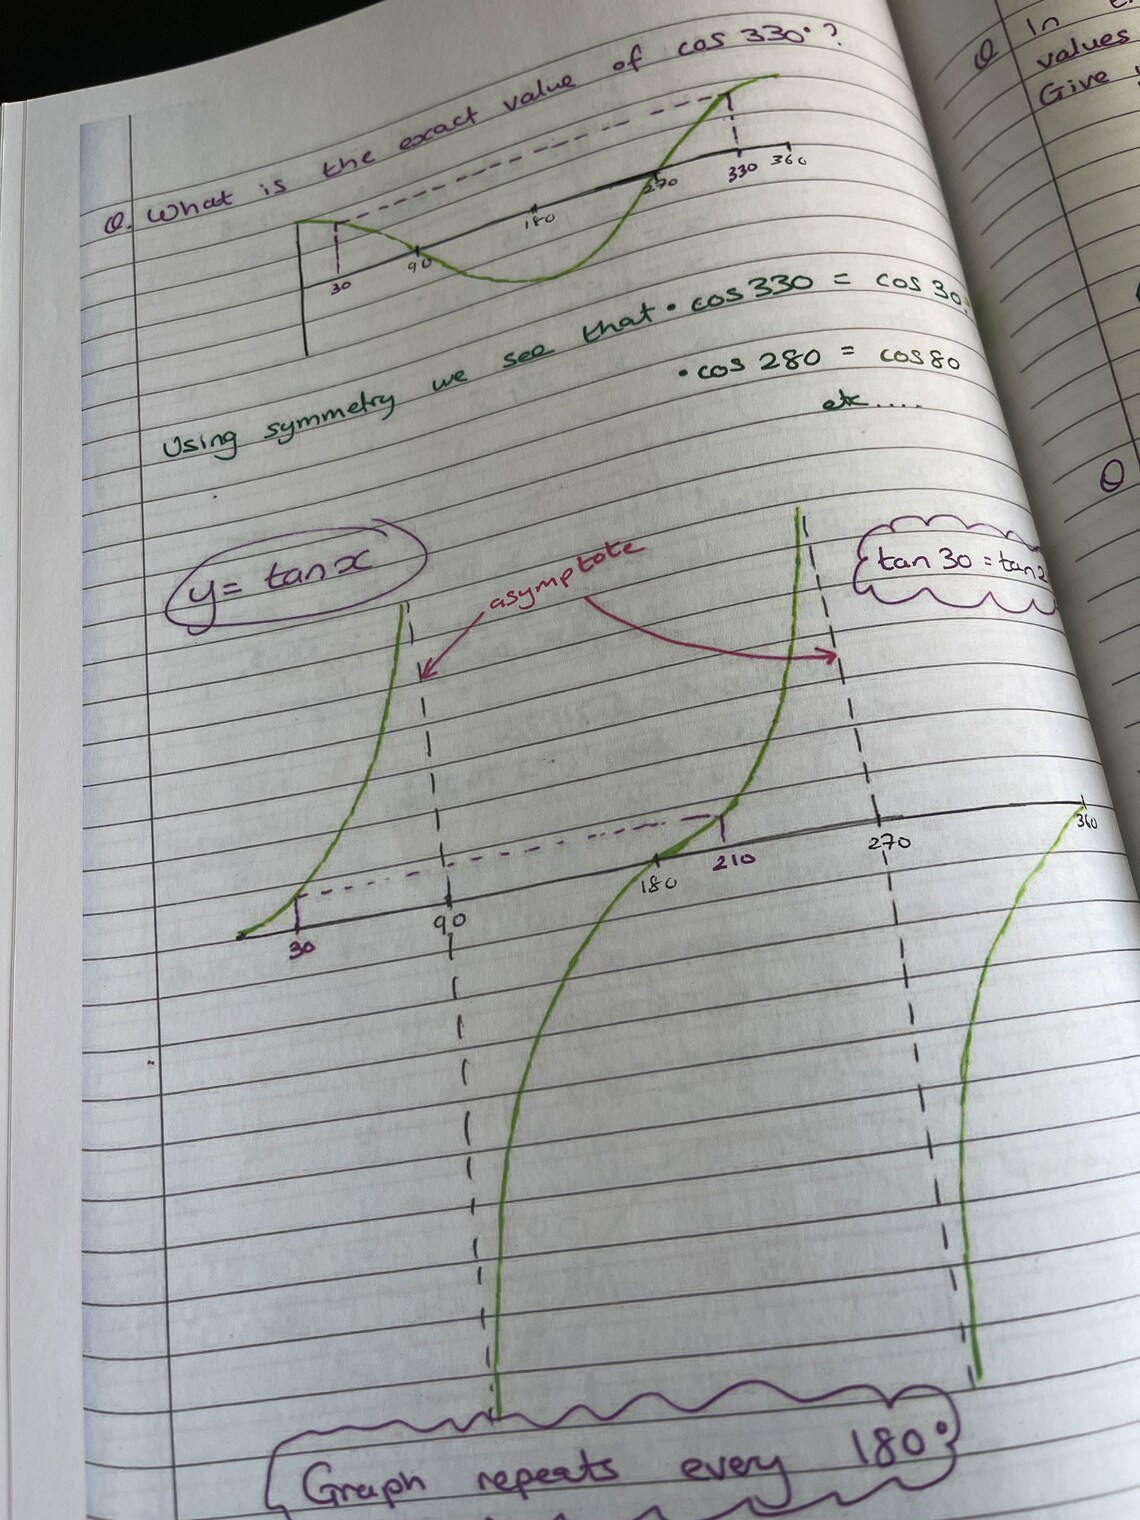 Q. What is the exact value of cos 330°?
30 90 180 270 330 360
Using symmetry we see that • cos 330 = cos 30.
• cos 280 = cos 80
etc....
y = tan x
asymptote
tan 30 = tan 2
30 90 180 210 270 360
Graph repeats every 180°
Q In
values
Give
Q